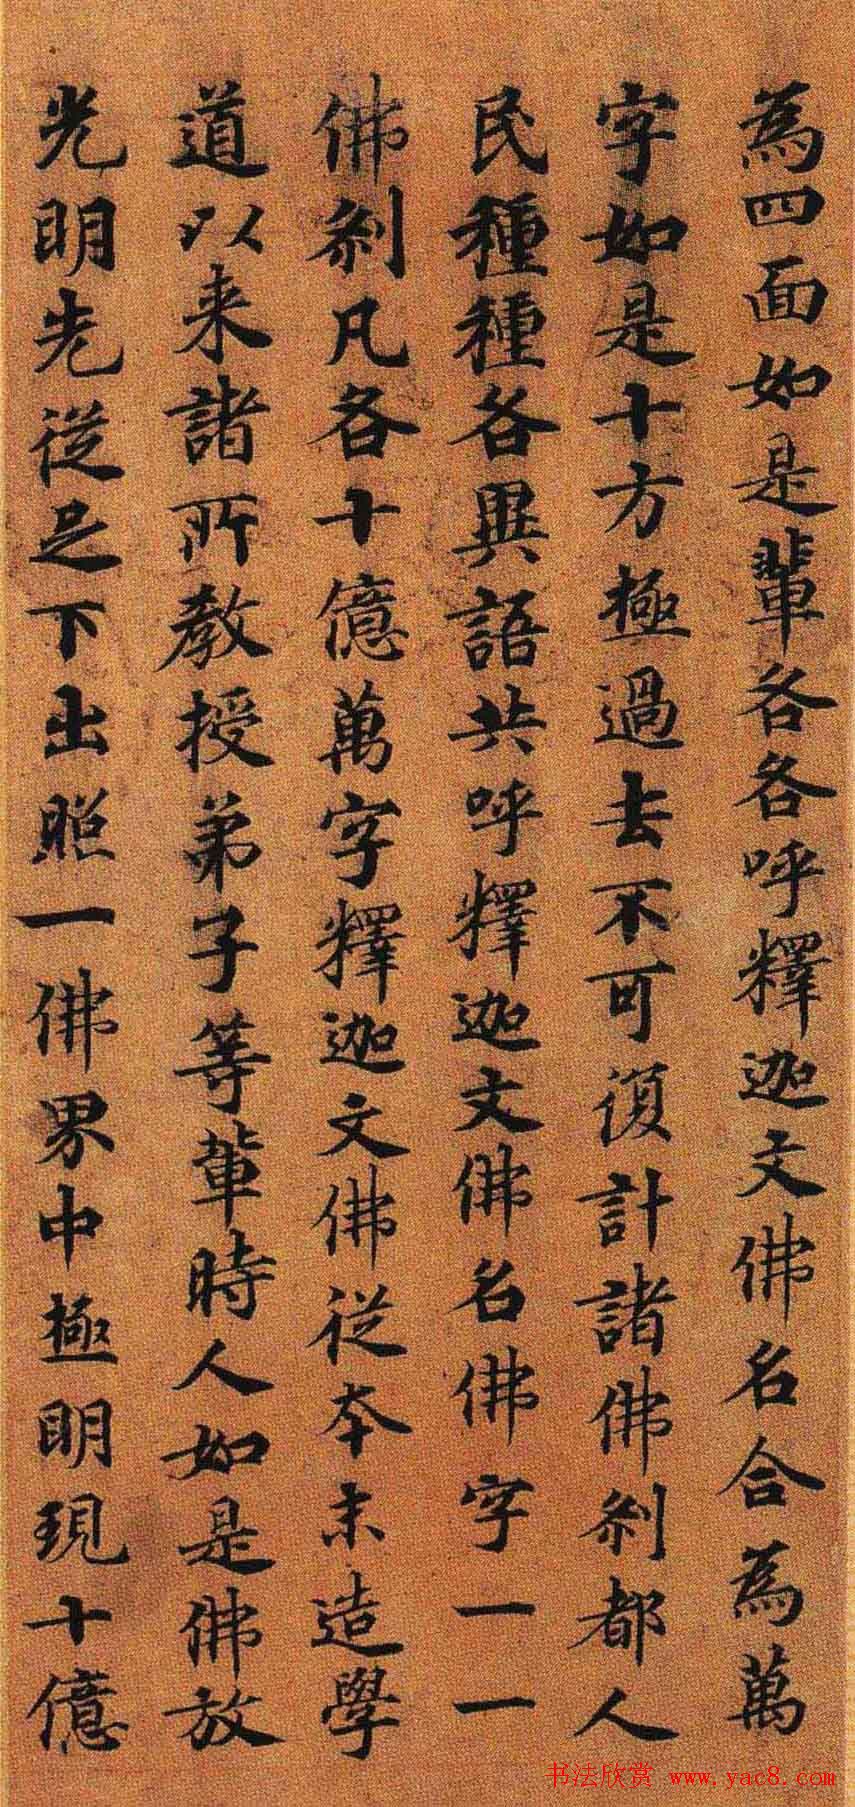 為四面如是輩各各呼釋迦文佛名合為萬
字如是十方極過去不可復計諸佛刹都人
民種種各異語共呼釋迦文佛名佛字一一
佛刹凡各十億萬字釋迦文佛從本末造學
道以来諸所教授弟子等輩時人如是佛放
光明先從足下出照一佛界中極明現十億
书法欣赏 www.yac8.com